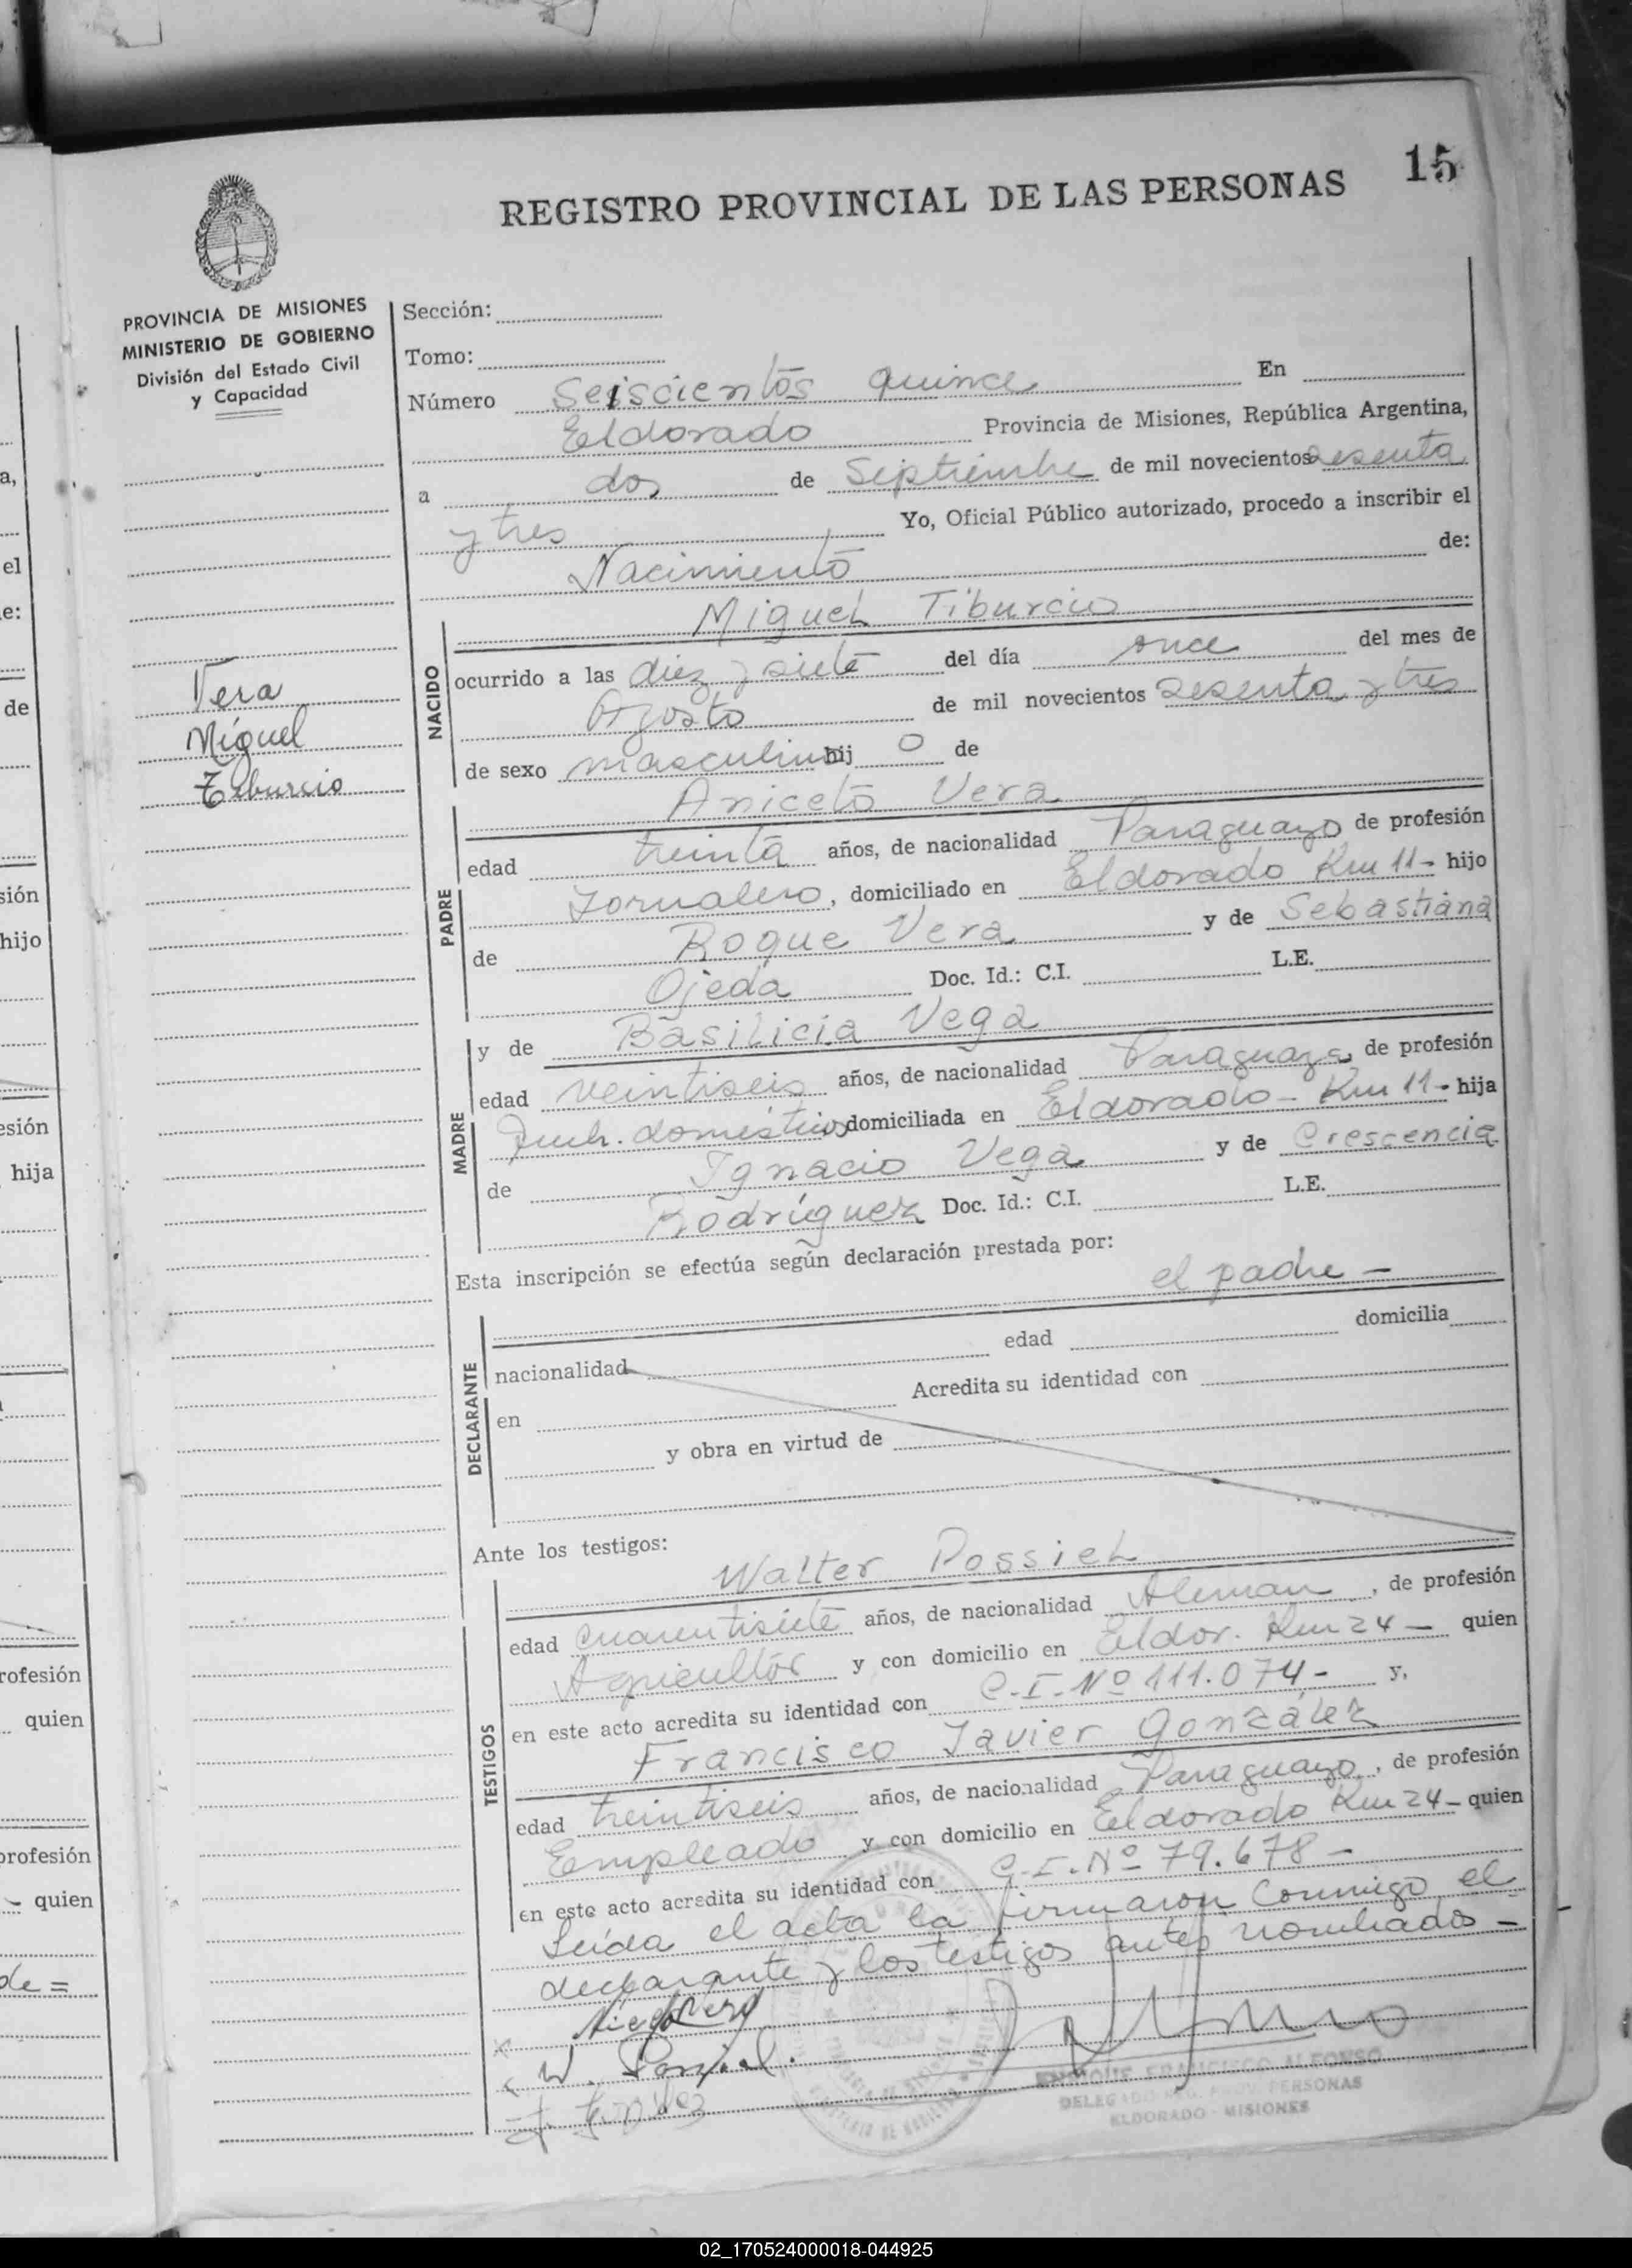 15
REGISTRO PROVINCIAL DE LAS PERSONAS
PROVINCIA DE MISIONES
MINISTERIO DE GOBIERNO
División del Estado Civil
y Capacidad
Vera
Miguel
Tiburcio
Sección:
Tomo:
Número Seiscientos quince En
Eldorado Provincia de Misiones, República Argentina,
a dos de Septiembre de mil novecientos sesenta
y tres Yo, Oficial Público autorizado, procedo a inscribir el
Nacimiento de:
Miguel Tiburcio
NACIDO
ocurrido a las diez y siete del día once del mes de
Agosto de mil novecientos sesenta y tres
de sexo masculino hij o de
Aniceto Vera
PADRE
edad treinta años, de nacionalidad Paraguayo de profesión
Jornalero, domiciliado en Eldorado Km 11- hijo
de Roque Vera y de Sebastiana
Ojeda Doc. Id.: C.I. L.E.
y de Basilicia Vega
MADRE
edad veintiseis años, de nacionalidad Paraguaya, de profesión
domiciliada en Eldorado - Km 11- hija
de Ignacio Vega y de Crescencia
Rodríguez Doc. Id.: C.I. L.E.
Esta inscripción se efectúa según declaración prestada por:
el padre -
DECLARANTE
nacionalidad edad domicilia
en Acredita su identidad con
y obra en virtud de
Ante los testigos:
Walter Possiel
TESTIGOS
edad cuarentisiete años, de nacionalidad Aleman, de profesión
Agricultor y con domicilio en Eldor. Km 24 - quien
en este acto acredita su identidad con C.I. Nº 111.074- y,
Francisco Javier González
edad treintiseis años, de nacionalidad Paraguayo, de profesión
Empleado y con domicilio en Eldorado Km 24- quien
en este acto acredita su identidad con C.I. Nº 79.678-
Leída el acta la firmaron conmigo el
declarante y los testigos antes nombrados -
W. Possiel.
ENRIQUE FRANCISCO ALFONSO
DELEGADO REG. PROV. PERSONAS
ELDORADO - MISIONES
02_170524000018-044925